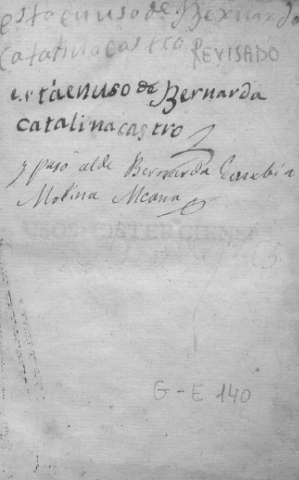 estaenuso de Bernarda
Catalinacastro REVISADO
estáenuso de Bernarda
catalinacastro
y paso alde Bernarda Eusebia
Molina
G-E 140